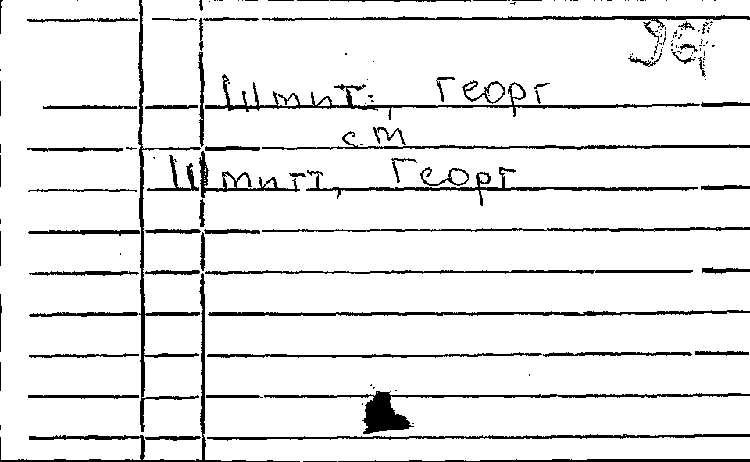 96
Шмит, Георг
см
Шмитт, Георг